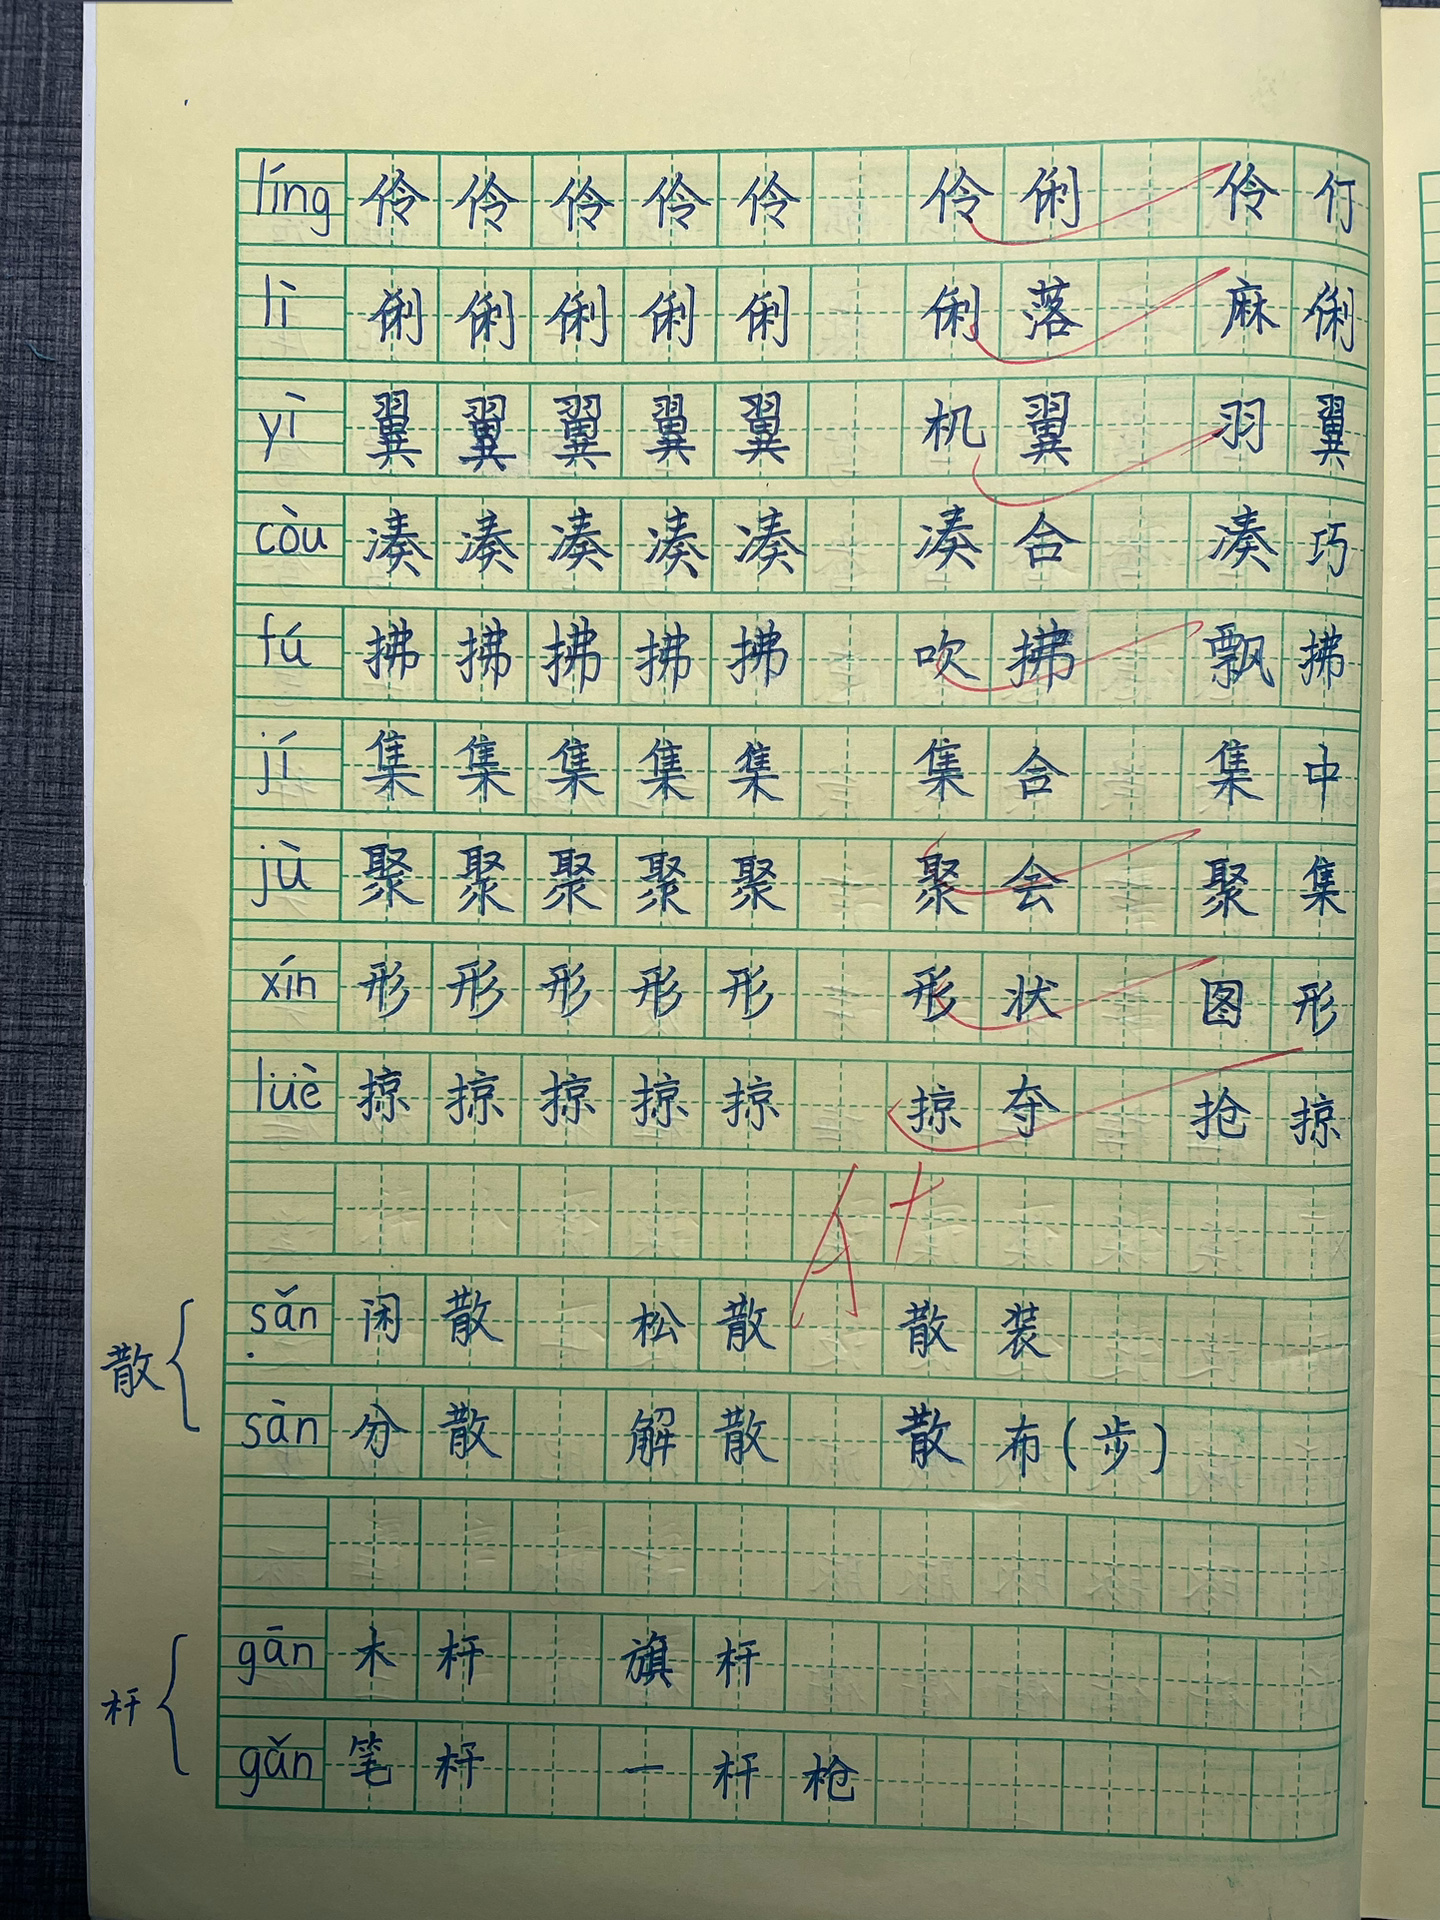 líng 伶 伶 伶 伶 伶 伶俐 伶仃
lì 俐 俐 俐 俐 俐 俐落 麻俐
yì 翼 翼 翼 翼 翼 机翼 羽翼
còu 凑 凑 凑 凑 凑 凑合 凑巧
fú 拂 拂 拂 拂 拂 吹拂 飘拂
jí 集 集 集 集 集 集合 集中
jù 聚 聚 聚 聚 聚 聚会 聚集
xín 形 形 形 形 形 形状 图形
lüè 掠 掠 掠 掠 掠 掠夺 抢掠
A+
散
sǎn 闲散 松散 散装
sàn 分散 解散 散布(步)
杆
gān 木杆 旗杆
gǎn 笔杆 一杆枪